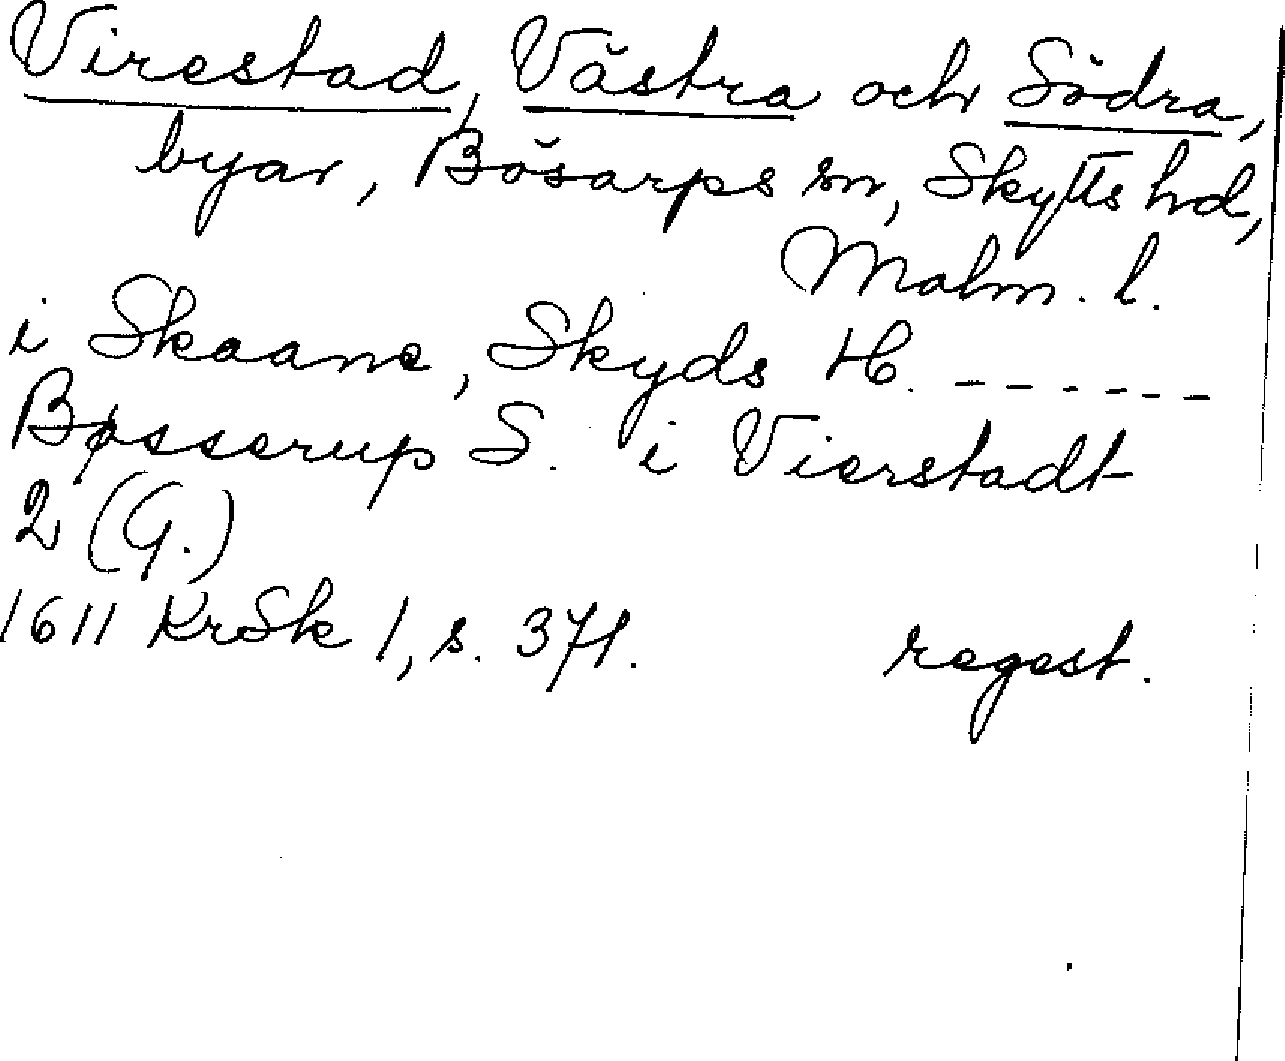 Virestad, Västra och Södra,
byar, Bösarps sn, Skytts hd,
Malm. l.
i Skaane, Skyds H. ------
Bøsserup S. i Vierstadt
2 (G.)
1611 KrSk 1, s. 371. regest.